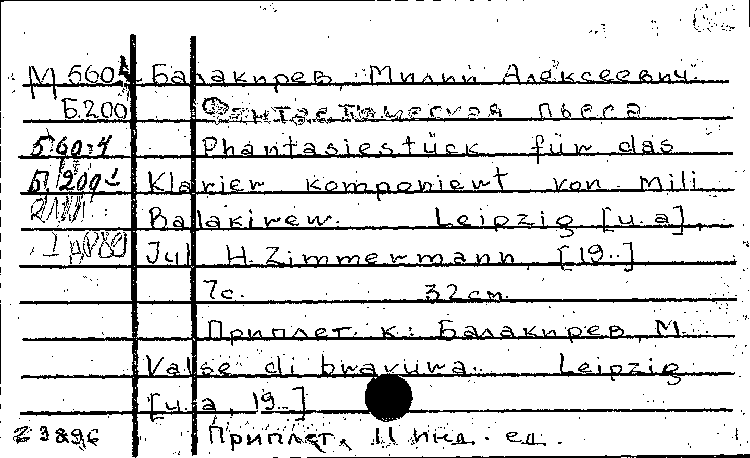 М 560.4 Балакирев, Милий Алексеевич.
Б.200 Фантастическая пьеса
Б 60:4 Phantasiestück für das
Б 200 Klavier komponiert von Mili
Balakirew. Leipzig [u. a],
Jul H. Zimmermann, [19..]
7с. 32 см.
Приплет. к: Балакирев, М.
Valse di bravura. Leipzig
[u. a, 19..]
23896 Приплет. 11 инд. ед.